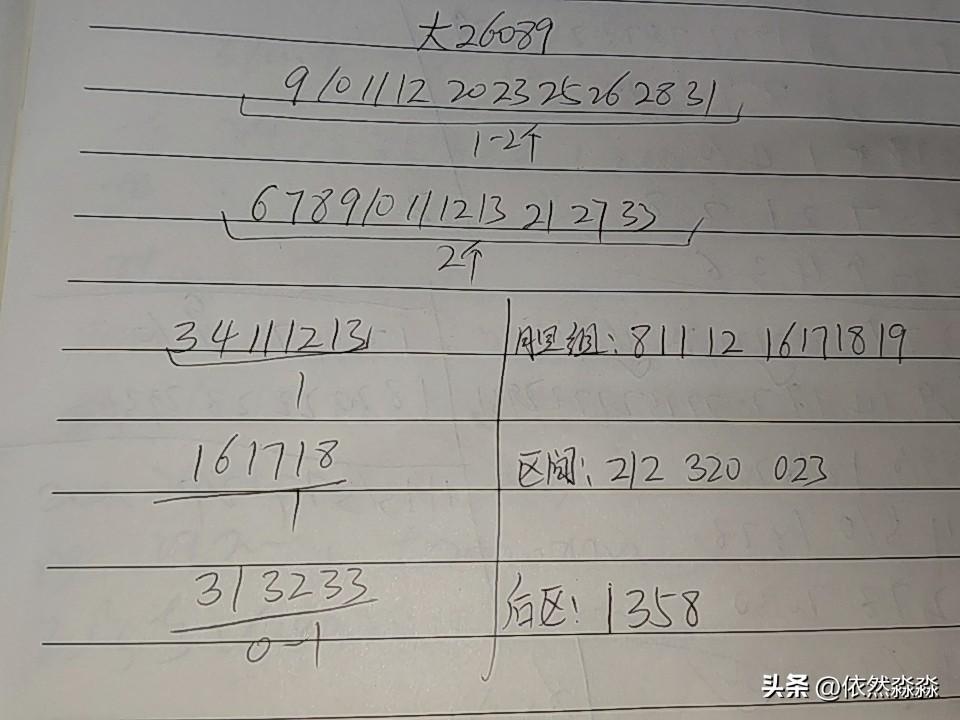 大26089
9 10 11 12 20 23 25 26 28 31
1-2个
6 7 8 9 10 11 12 13 21 27 33
2个
3 4 11 12 13
1
16 17 18
1
31 32 33
0-1
胆组：8 11 12 16 17 18 19
区间：212 320 023
后区：1 3 5 8
头条 @依然淼淼